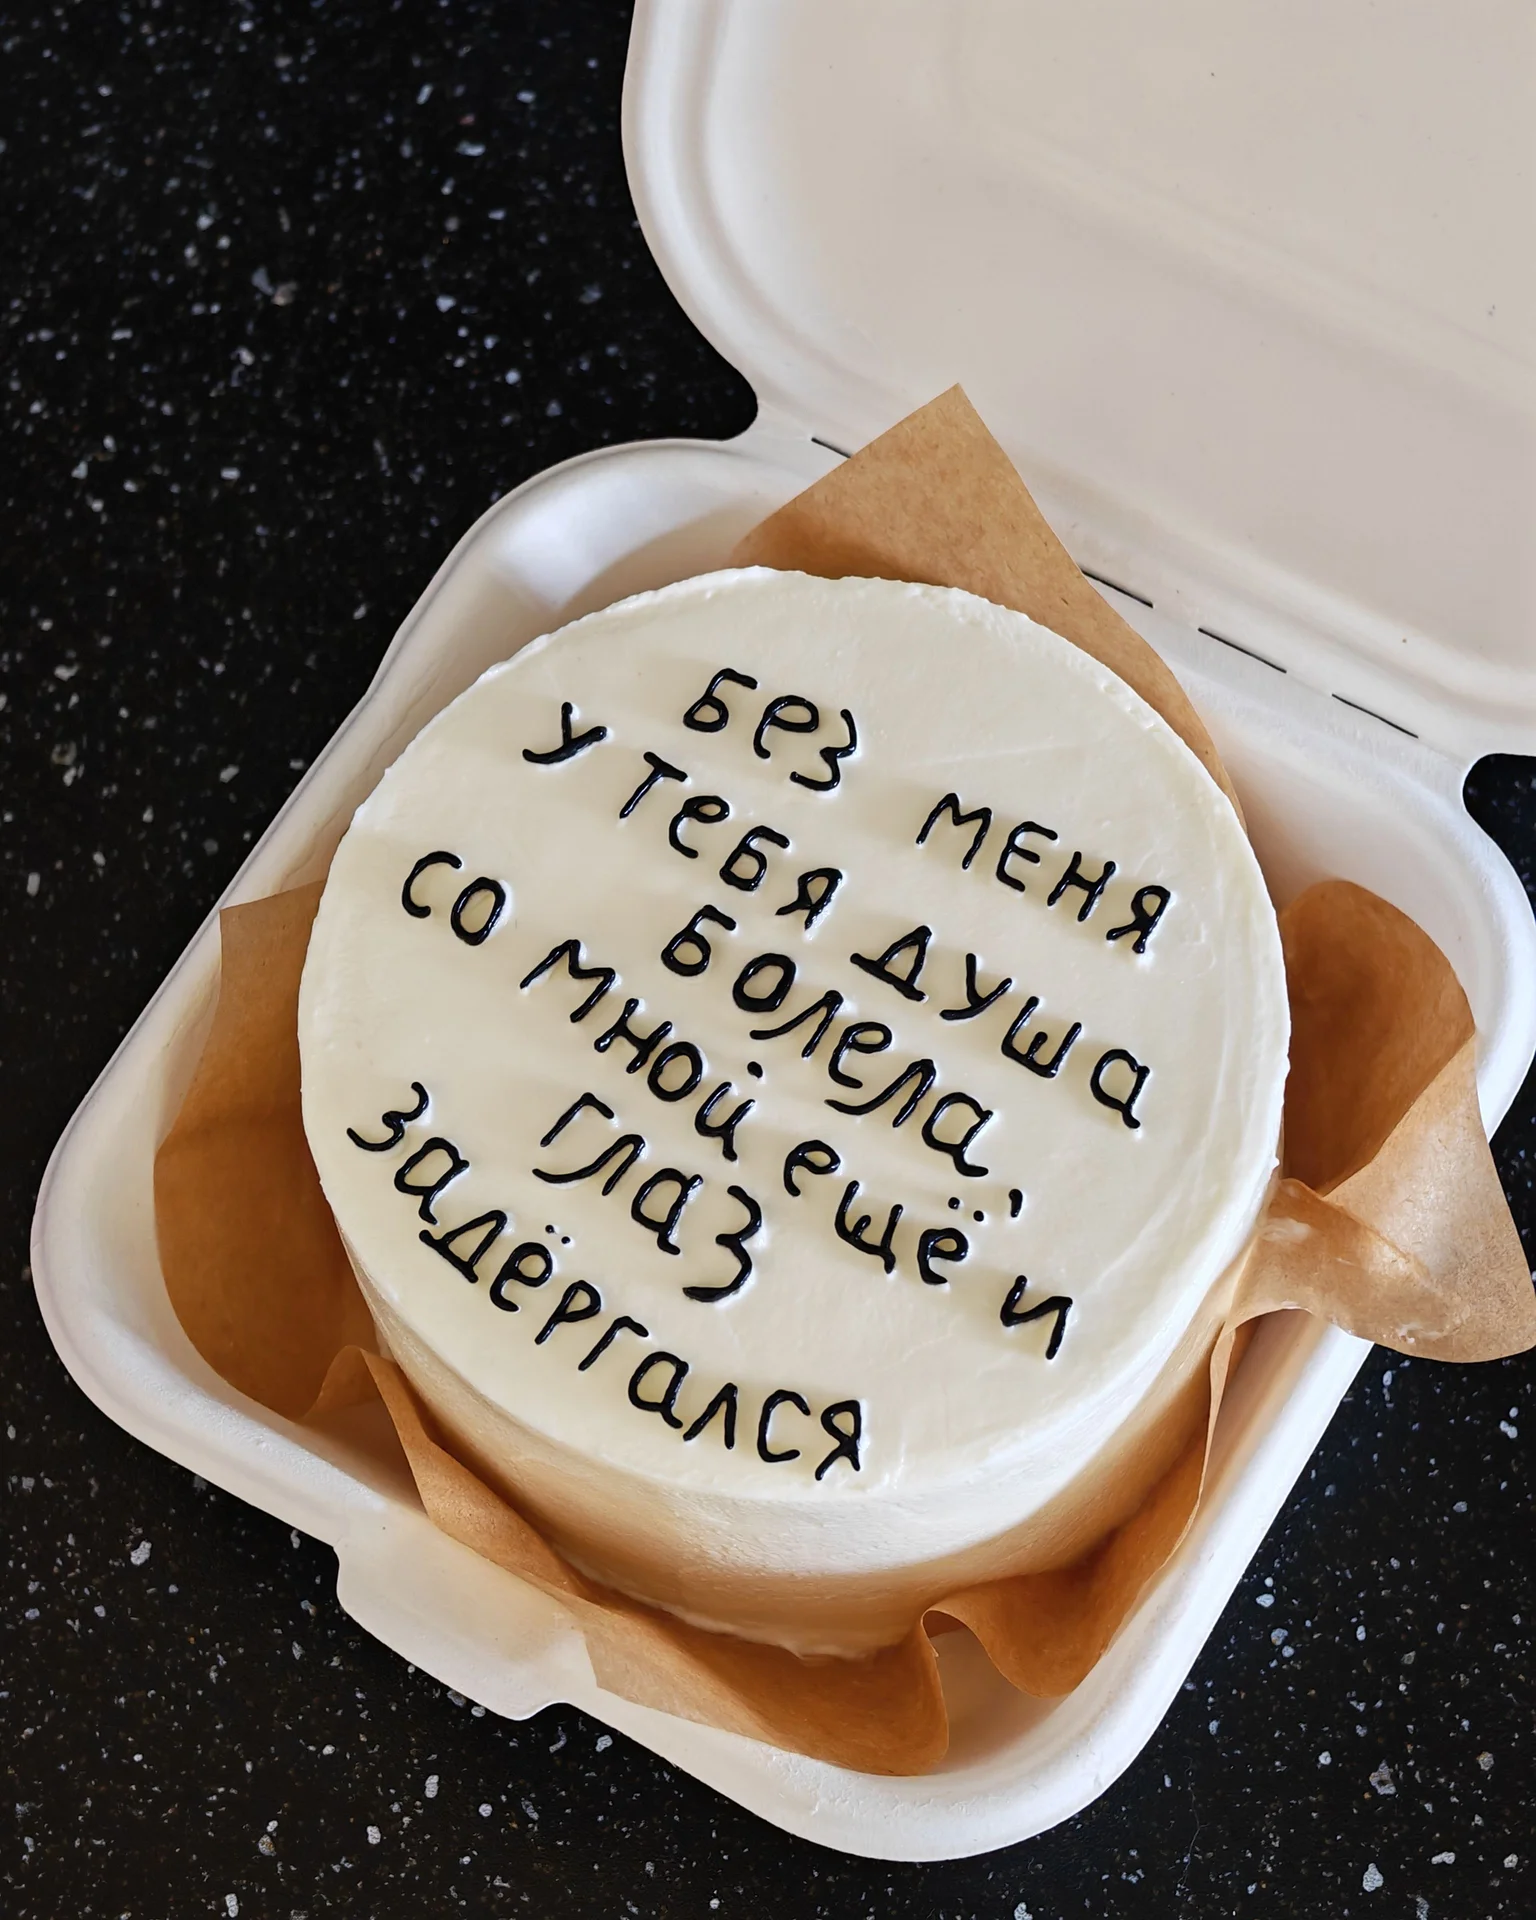 БеЗ МЕНЯ
У ТеБЯ ДУШа
БОЛеЛа,
СО МНОЙ ещё и
ГЛаЗ
ЗаДёРГаЛСЯ